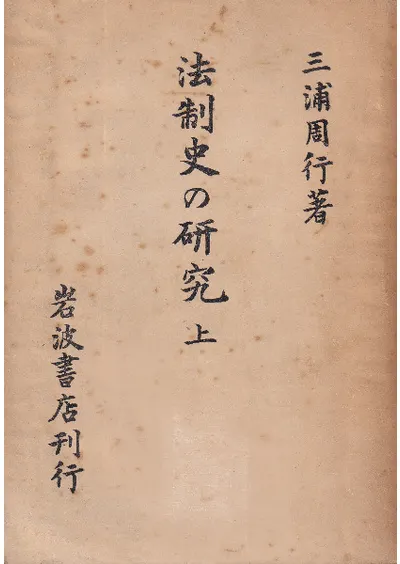 三浦周行著
法制史の研究 上
岩波書店刊行